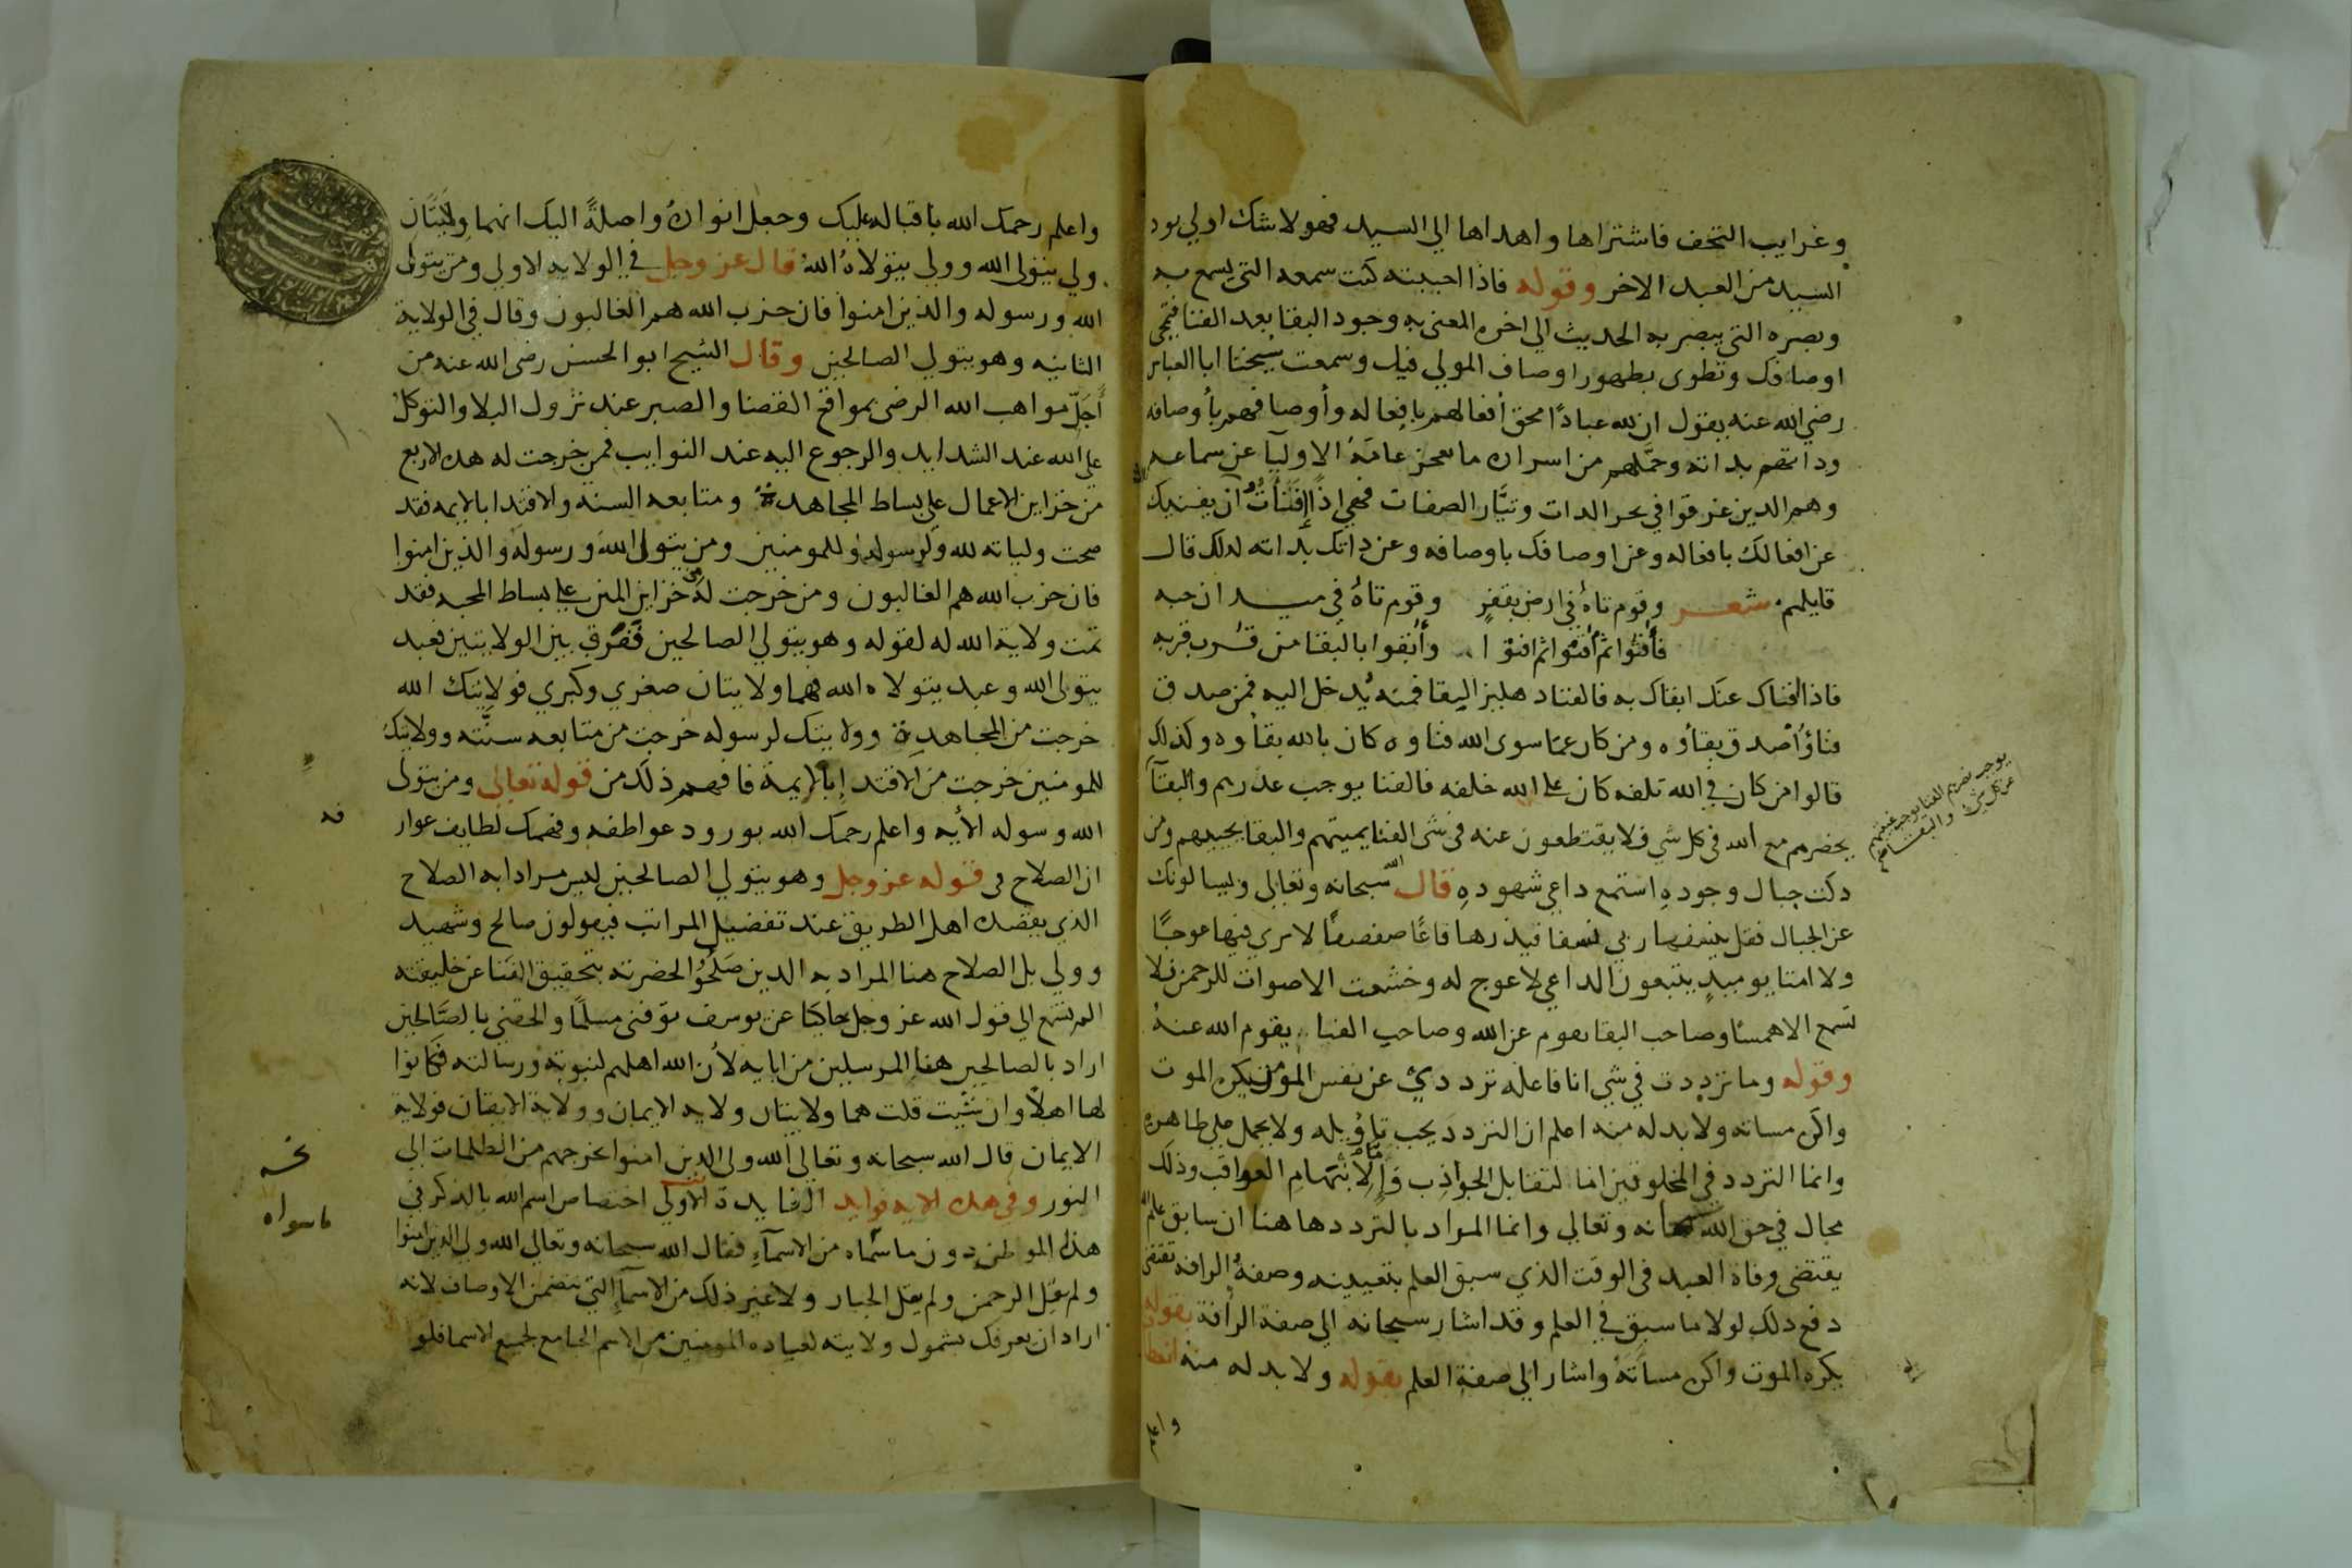 وغرايب التحف فاشتراها واهداها الي السيد فهو لا شك اولي بود
السيد من العبد الاخر وقوله فاذا احببته كنت سمعه التي يسمع به
وبصره التي يبصر به الحديث الي اخره المعني به وجود البقا بعد الفنا فتمحي
اوصافك وتطوى بظهور اوصاف المولي فيك وسمعت شيخنا ابا العباس
رضي الله عنه يقول ان لله عبادًا محق أفعالهم بافعاله وأوصافهم بأوصافه
وذاتهم بذاته وحمّلهم من اسراره ما يعجز عامَة الاوليآ عن سماعه
وهم الذين غرقوا في بحر الذات وتيَّار الصفات فهي اذًا فنأت ان يفنيك
عن افعالك بافعاله وعن اوصافك باوصافه وعن ذاتك بذاته لذلك قال
قايلهم شعر وقوم تاهُ في ارض بقفرٍ وقوم تاهُ في ميدان حبه
فأفنُوا ثم أفنُوا ثم افنوا وأبقوا بالبقا من قرب قربه
فاذا افناك عنك ابقاك به فالفنا دهليز البقا فمنه يُدخل اليه فمن صدق
فناؤُه أصدق بقأوه ومن كان عمّا سوى الله فناوه كان بالله بقاوه وكذلك
قالوا من كان في الله تلفه كان علي الله خلفه فالفنا يوجب عذرهم والبقآ
يحضرهم مع الله في كل شي فلا يقتطعون عنه في شي الفنا يميتهم والبقا يحييهم ومن
دكت جبال وجودهِ استمع داعي شهودهِ قال الله سبحانه وتعالي ويسالونك
عن الجبال فقل ينسفها ربي نسفا فيذرها قاعًا صفصفًا لا تري فيها عوجًا
ولا امتا يوميدٍ يتبعون الداعي لا عوج له وخشعت الاصوات للرحمن فلا
تسمع الا همسًا وصاحب البقا يقوم عن الله وصاحب الفنا يقوم الله عنهُ
وقوله وما ترددت في شي انا فاعله ترددي عن نفس المومن يكره الموت
واكره مساته ولا بد له منه اعلم ان التردد يجب تاويله ولا يحمل علي ظاهره
وانما التردد في المخلوقين اما لتقابل الجواذب وإما لانبهام العواقب وذلك
محال في حق الله سبحانه وتعالي وانما المراد بالتردد هاهنا ان سابق علم الله
يقتضي وفاة العبد في الوقت الذي سبق العلم بتعيينه وصفةُ الرافه تقتضي
دفع ذلك لولا ما سبق في العلم وقد اشار سبحانه الي صفة الرأفة بقوله
يكره الموت واكره مساتهُ واشار الي صفة العلم بقوله ولا بد له منه
يوجب عذرهم الفنا يوجب غيبتهم
عن كل شي والبقا
واعلم رحمك الله باقباله عليك وجعل انواره واصلةً اليك انهما وليتان
ولي يتولي الله وولي يتولاهُ اللهُ قال عز وجل في الولايه الاولي ومن يتولى
الله ورسوله والذين امنوا فان حزب الله هم الغالبون وقال في الولاية
الثانيه وهو يتولي الصالحين وقال الشيخ ابو الحسن رضي الله عنه من
أجَلّ مواهب الله الرضى بمواقع القضا والصبر عند نزول البلا والتوكل
علي الله عند الشدايد والرجوع اليه عند النوايب فمن خرجت له هذه الاربع
من خزاين الاعمال علي بساط المجاهدة ومتابعه السنه والاقتدا بالايمه فقد
صحت ولياته لله ولرسوله وللمومنين ومن يتولى الله ورسوله والذين امنوا
فان حزب الله هم الغالبون ومن خرجت له من خزاين المنن علي بساط المحبه فقد
تمت ولاية الله له لقوله وهو يتولي الصالحين فَفرق بين الولايتين فعبد
يتولى الله وعبد يتولاه الله فهما ولايتان صغري وكبري فولايتك الله
خرجت من المجاهدة وولايتك لرسوله خرجت من متابعه سنَّته وولايتك
للمومنين خرجت من الاقتدا بالايمة فافهم ذلك من قوله تعالى ومن يتولى
الله ورسوله الأيه واعلم رحمك الله بورود عواطفه وفهمك لطايف عوار
فه
ان الصلاح في قوله عز وجل وهو يتولي الصالحين ليس مرادا به الصلاح
الذي يقصده اهل الطريق عند تفضيل المراتب فيقولون صالح وشهيد
وولي بل الصلاح هنا المراد به الذين صَلحُوُ الحضرته بتحقيق الفنا عن خليقته
الم تسمع الي قول الله عز وجل حاكيًا عن يوسف توفني مسلمًا والحقني بالصَّالحين
اراد بالصالحين هنا المرسلين من ابايه لأن الله اهلهم لنبوته ورسالته فكانوا
لها اهلاً وان شيت قلت هما ولايتان ولايه الايمان وولاية الايقان فولاية
الايمان قال الله سبحانه وتعالي الله ولي الذين امنوا يخرجهم من الظلمات الي
النور وفي هذه الايه فوايد الفايدة الاولي اختصاص اسم الله بالذكر في
هذا الموطن دون ماسمّاه من الاسمآءِ فقال الله سبحانه وتعالي الله ولي الذين امنوا
ولم يقل الرحمن ولم يقل الجبار ولا غير ذلك من الاسمآءِ التي تتضمن الاوصاف لانه
اراد ان يعرفك بشمول ولايته لعباده المومنين من الاسم الجامع لجميع الاسما فلو
نخسه
ماسواه